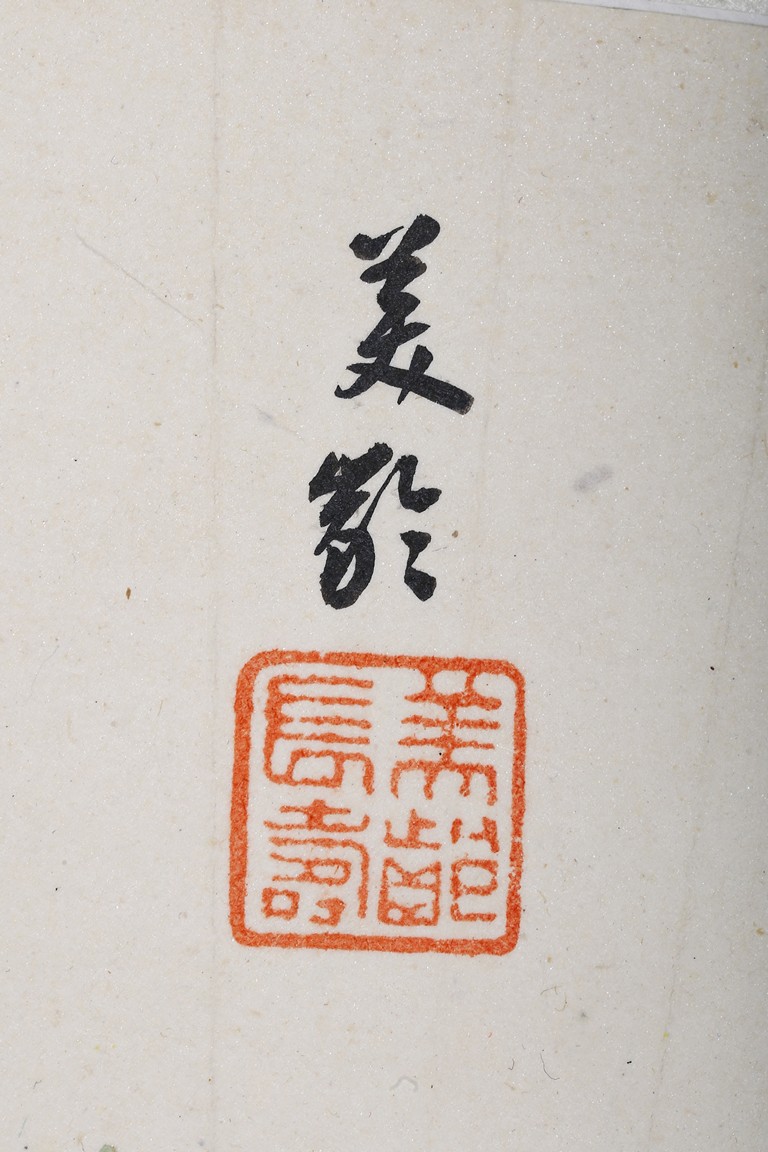 美
齡
美齡
長壽